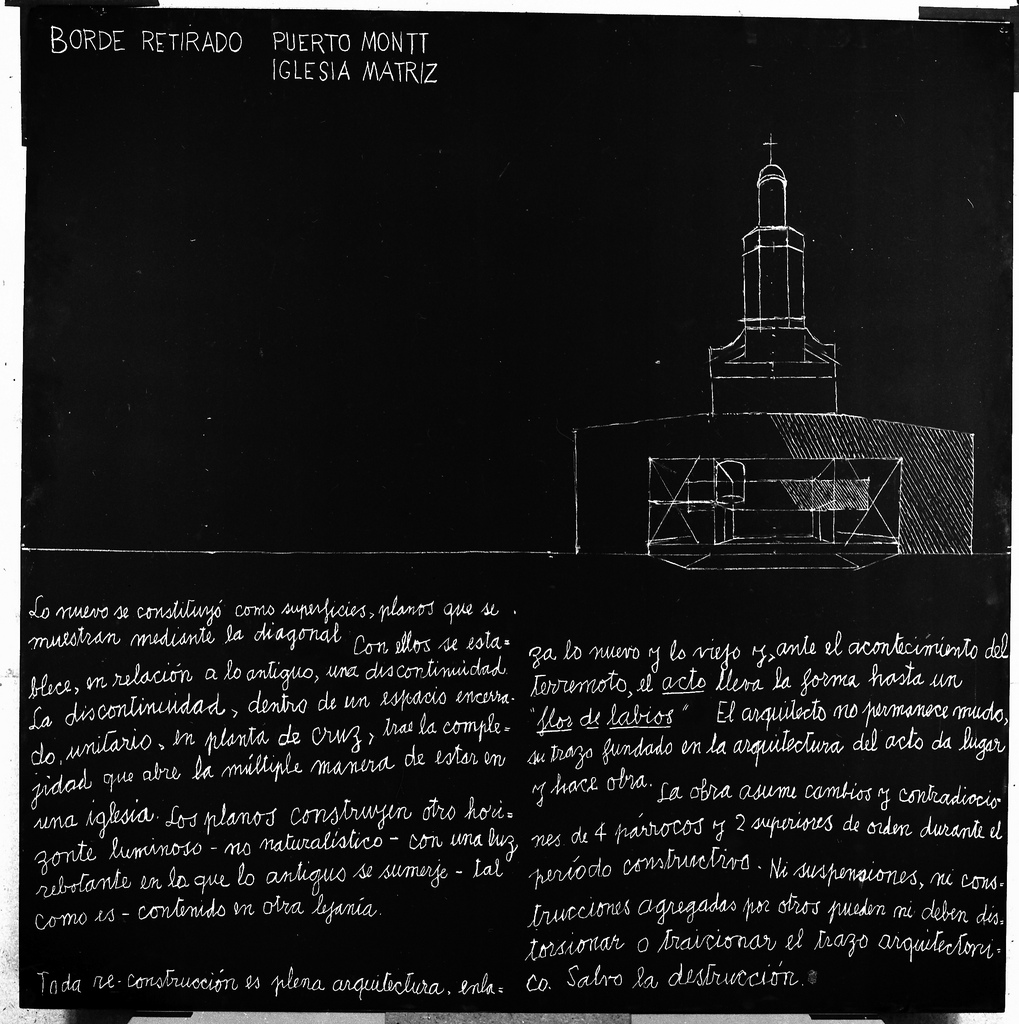 BORDE RETIRADO PUERTO MONTT
IGLESIA MATRIZ
Lo nuevo se constituyó como superficies, planos que se
muestran mediante la diagonal Con ellos se esta=
blece, en relación a lo antiguo, una discontinuidad.
La discontinuidad, dentro de un espacio encerra-
do, unitario, en planta de cruz, trae la comple=
jidad que abre la múltiple manera de estar en
una iglesia. Los planos construyen otro hori=
zonte luminoso - no naturalístico - con una luz
rebotante en la que lo antiguo se sumerje - tal
como es - contenido en otra lejanía.
Toda re-construcción es plena arquitectura, enla=
za lo nuevo y lo viejo y, ante el acontecimiento del
terremoto, el acto lleva la forma hasta un
"flor de labios" El arquitecto no permanece mudo,
su trazo fundado en la arquitectura del acto da lugar
y hace obra. La obra asume cambios y contradiccio
nes de 4 párrocos y 2 superiores de orden durante el
período constructivo. Ni suspensiones, ni cons=
trucciones agregadas por otros pueden ni deben dis=
torsionar o traicionar el trazo arquitectóni=
co. Salvo la destrucción.